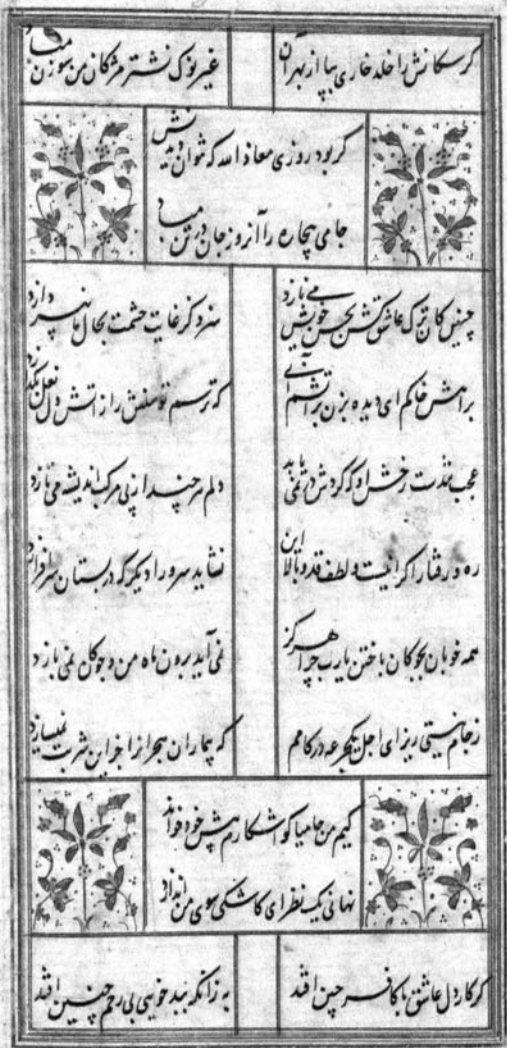 گر سکانش را خلد خاری بپا از بهر آن
غیر نوک نشتر مژگان من سوزن مباد
گر بود روزی معاذ الله که نتوان دیدنش
جامی بیچاره را آنروز جان در تن مباد
چنین کان ترک عاشق کش بحسن خویش می نازد
سزد کز غایت حشمت بحال ما نپردازد
براهش خاکم ای دیده بزن بر آتشم آبی
که ترسم توسنش را ز آتش دل نعل بگدازد
عجب تندست رخش او که گردش در نمی یابد
دلم هر چند از پی مرکب اندیشه می تازد
ره و رفتار اگر اینست و لطف قد و بالا این
نشاید سرو را دیگر که در بستان سر افرازد
همه خوبان بچوگان باختن یارب چرا هرگز
نمی آید برون ماه من و چوگان نمی بازد
ز جام نیستی ریز ای اجل یکجرعه در کامم
که بیماران هجر از جز این شربت نمیسازد
کیم من جامیا کو آشکارم پیش خود خواند
نهانی یک نظر ای کاشکی سوی من اندازد
گر کار دل عاشق با کافر چین افتد
به زانکه ببد خویی بی رحم چنین افتد